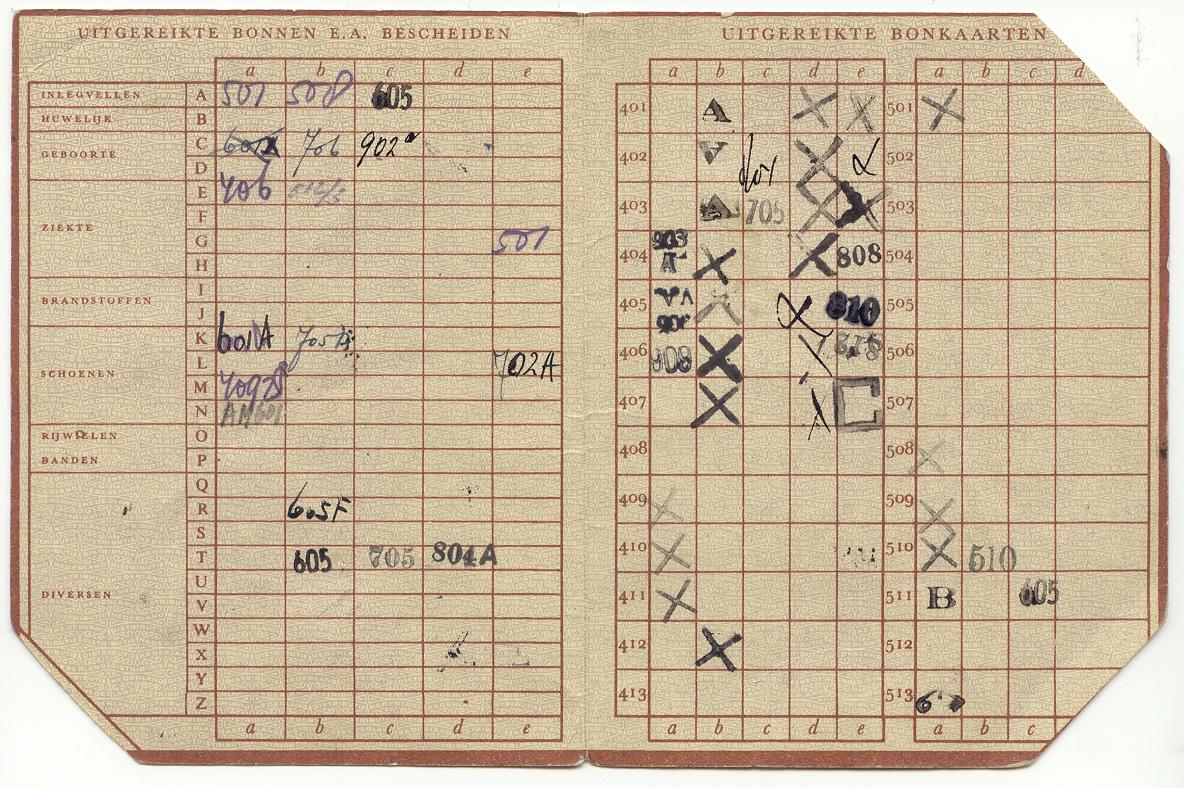 UITGEREIKTE BONNEN E.A. BESCHEIDEN
a b c d e
INLEGVELLEN A 501 508 605
HUWELIJK B
GEBOORTE C 706 902a
D
E 706
F
ZIEKTE G 501
H
I
BRANDSTOFFEN J
K 601A
SCHOENEN L 702A
M
N AM601
RIJWIELEN O
BANDEN P
Q
R 605F
S
T 605 705 804A
U
DIVERSEN V
W
X
Y
Z
a b c d e
UITGEREIKTE BONKAARTEN
a b c d e a b c d
401 A X X 501 X
402 X 502
403 705 X X 503
404 903 A X X 808 504
405 810 505
406 909 X 506
407 X 507
408 508 X
409 X 509 X
410 X 510 X 510
411 X 511 B 605
412 X 512
413 513
a b c d e a b c